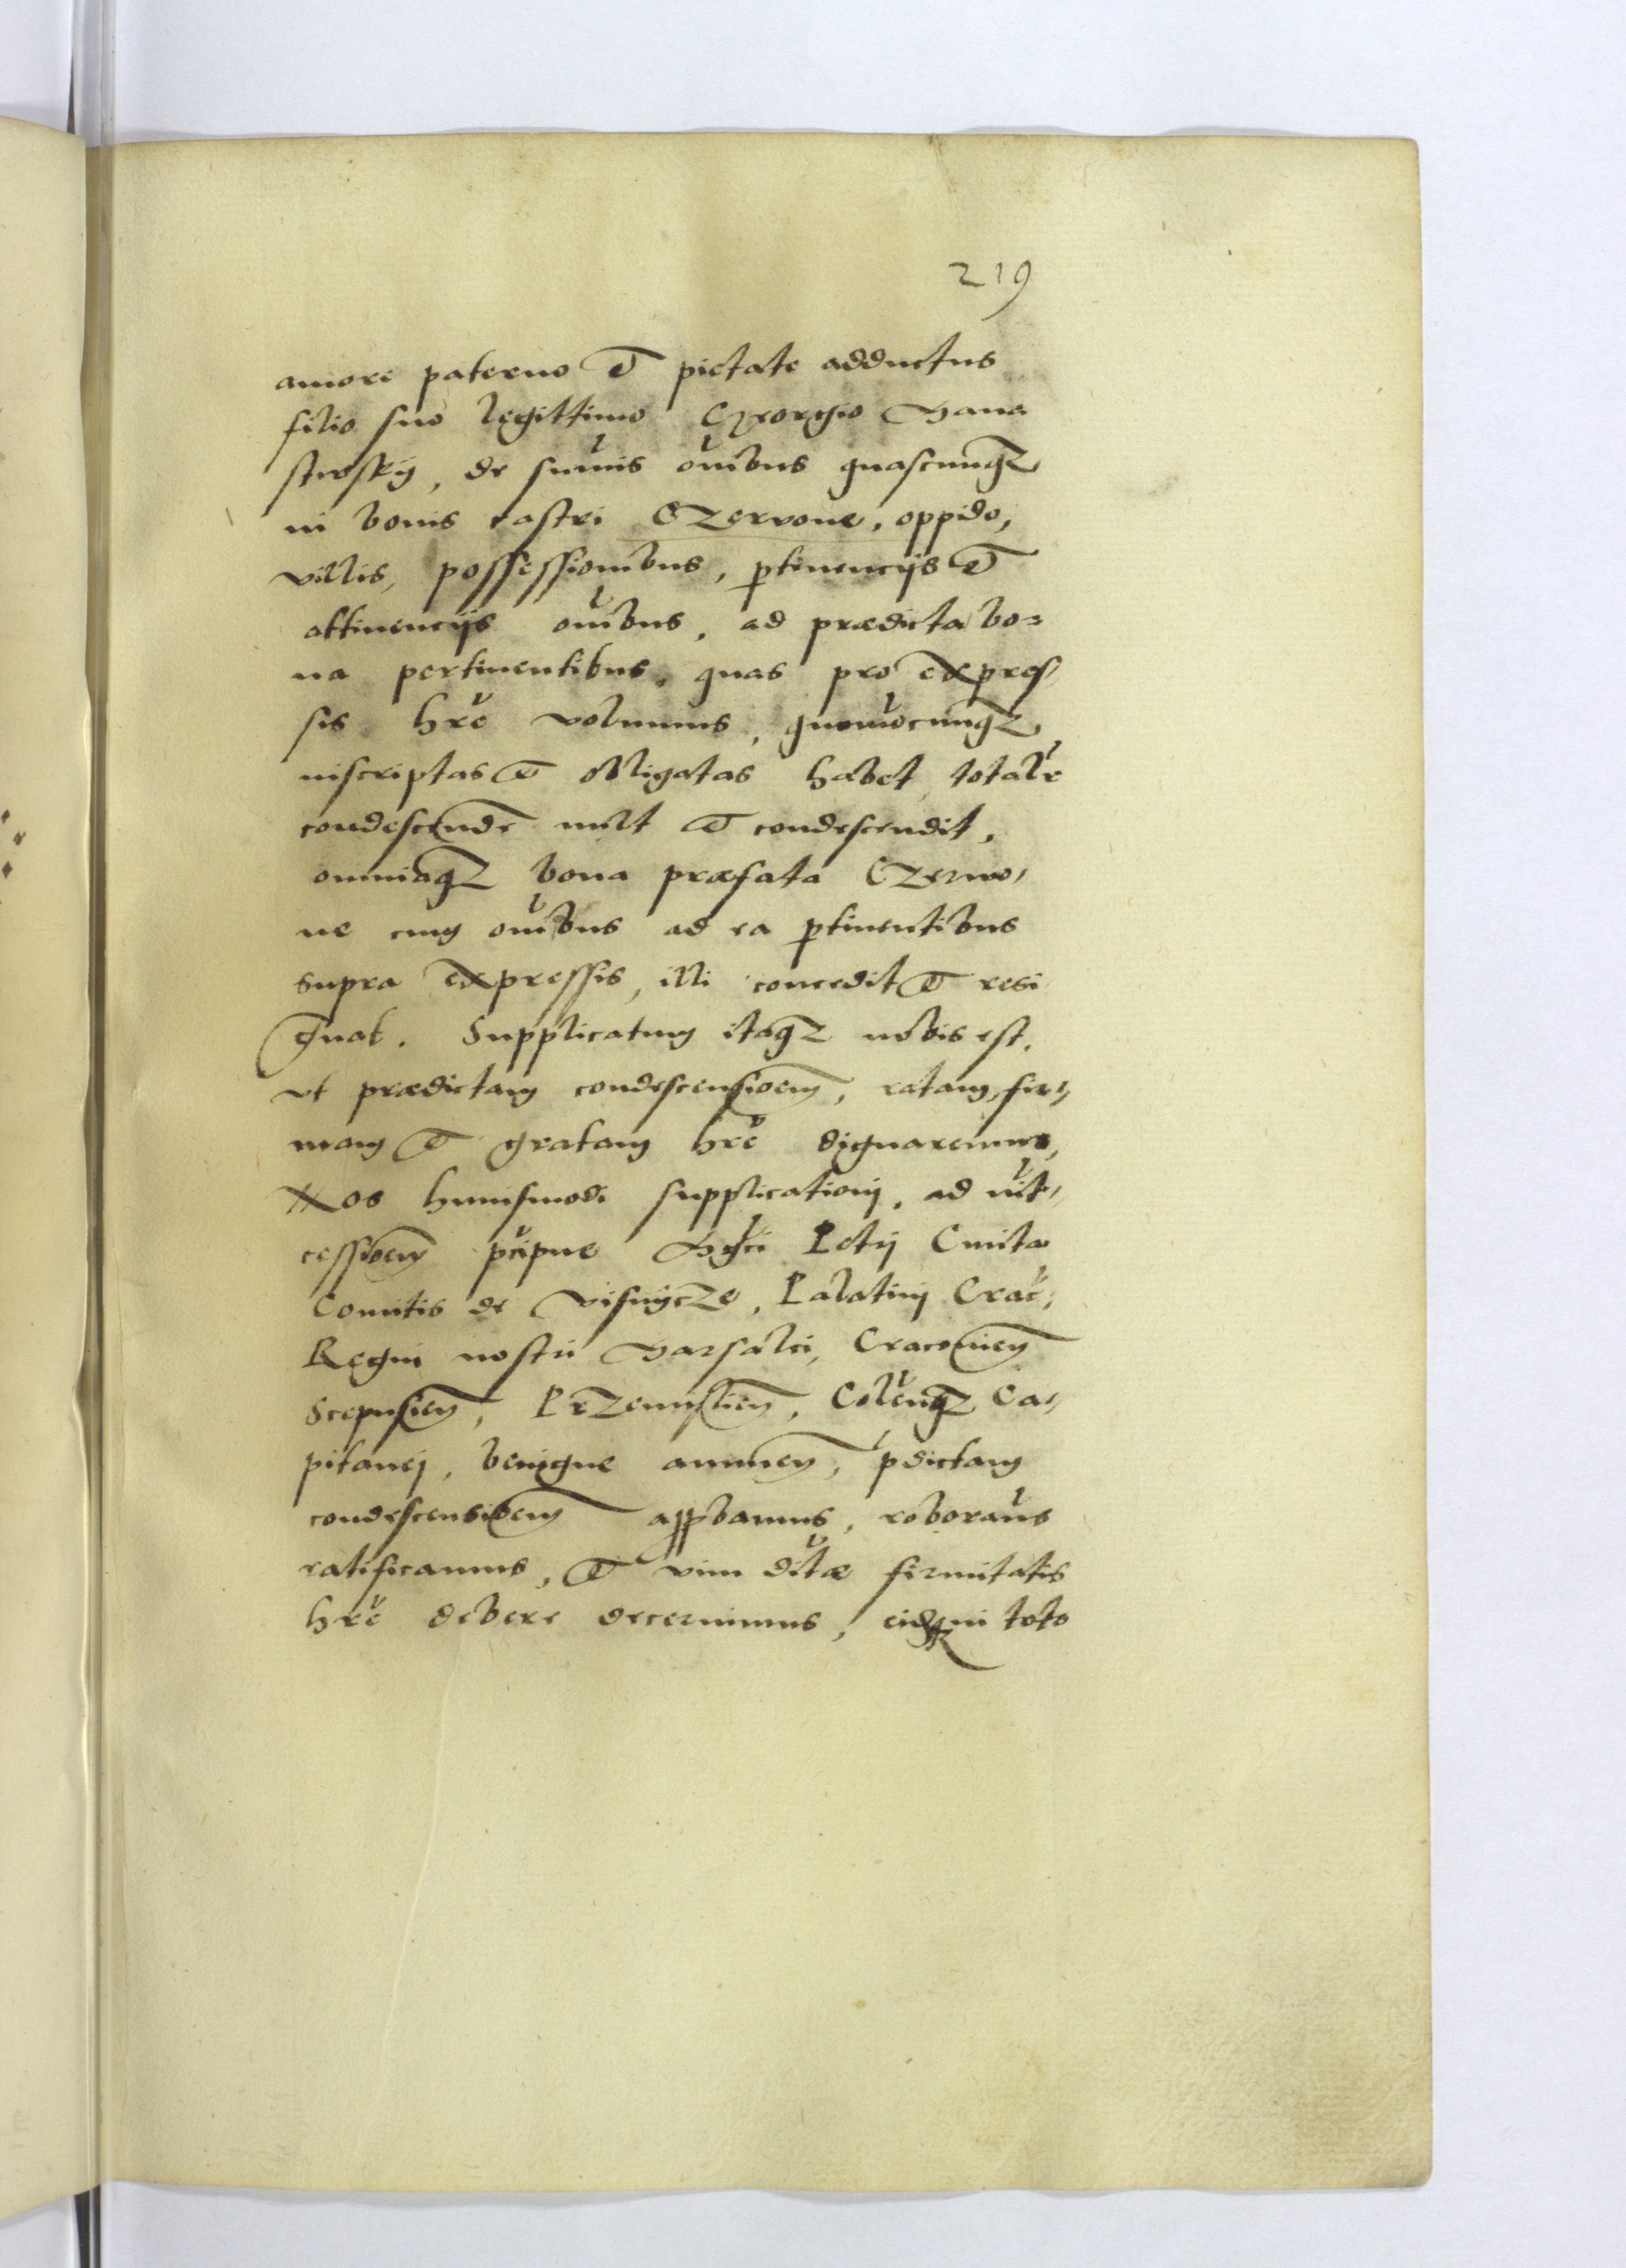 219
amore paterno et pietate adductus
filio suo legittimo Georgio Mana
sterskij, de summis omībus quascunq3
in bonis castri Czervone, oppido,
villis, possessionibus, ptinencijs et
attinencijs omībus, ad prædicta bo=
na pertinentibus, quas pro expres/
sis hrē volumus, quomōcunq3,
inscriptas et obligatas habet, totalr
condescende vult et condescendit,
omniaq3 bona præfata Czerwo/
ne cum omībus ad ea ptinentibus
supra expressis, illi concedit et resi
gnat. Supplicatum itaq3 nobis est,
vt prædictam condescensioem, ratam, fir/
mam et gratam hrē dignaremur,
Nos huiusmodi supplicationi, ad int/
cessioem pcipue Mgci Petri Cmita
Comitis de Visnijcze, Palatini Crac,
Regni nostri Marsalci, Cracovien
Scepusien, Przemislien, Colenq3 Ca/
pitanei, benigne annuen, pdictam
condescensioem appbamus, roboramus
ratificamus, et vim ditæ firmitatis
hrē debere decernimus, eidq3 in toto